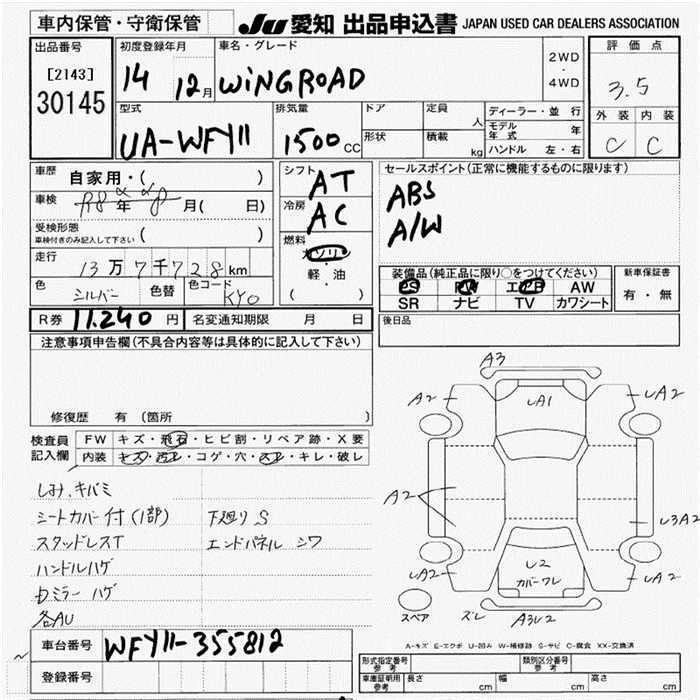 車内保管・守衛保管
JU 愛知 出品申込書 JAPAN USED CAR DEALERS ASSOCIATION
出品番号
[2143]
30145
初度登録年月
14 12月
車名・グレード
WiNGROAD
2WD
・
4WD
評価点
3.5
外装 内装
C C
型式
UA-WFY11
排気量
1500cc
ドア
形状
定員 人
積載 kg
ディーラー・並行
モデル年式 年
ハンドル 左・右
車歴 自家用・( )
車検 年 月( 日)
受検形態
車検付きのみ記入して下さい ( )
走行
13万7千728km
色 シルバー 色替 色コード KY0
シフト AT
冷房 AC
燃料
ガソリン
・
軽油
( )
セールスポイント(正常に機能するものに限ります)
ABS
A/W
装備品(純正品に限り○をつけてください)
PS PW エアB AW
SR ナビ TV カワシート
新車保証書
有・無
R券 11.240円 名変通知期限 月 日
後日品
注意事項申告欄(不具合内容等は具体的に記入して下さい)
修復歴 有 (箇所 )
検査員記入欄
FW キズ・飛石・ヒビ割・リペア跡・X要
内装 キズ・汚レ・コゲ・穴・スレ・キレ・破レ
しみ、キバミ
シートカバー付(1部) 下廻りS
スタッドレスT エンドパネル シワ
ハンドルハゲ
ミラー ハゲ
各AU
車台番号 WFY11-355812
登録番号
A3
A2 UA1 UA2
A2 U3A2
UA2 U2 UA2
カバーワレ
スペア ズレ A3U2
A-キズ E-エクボ U-凹み W-補修跡 S-サビ C-腐食 XX-交換済
形式指定番号 参考 類別区分番号 参考
車庫証明用 参考 長さ cm 幅 cm 高さ cm